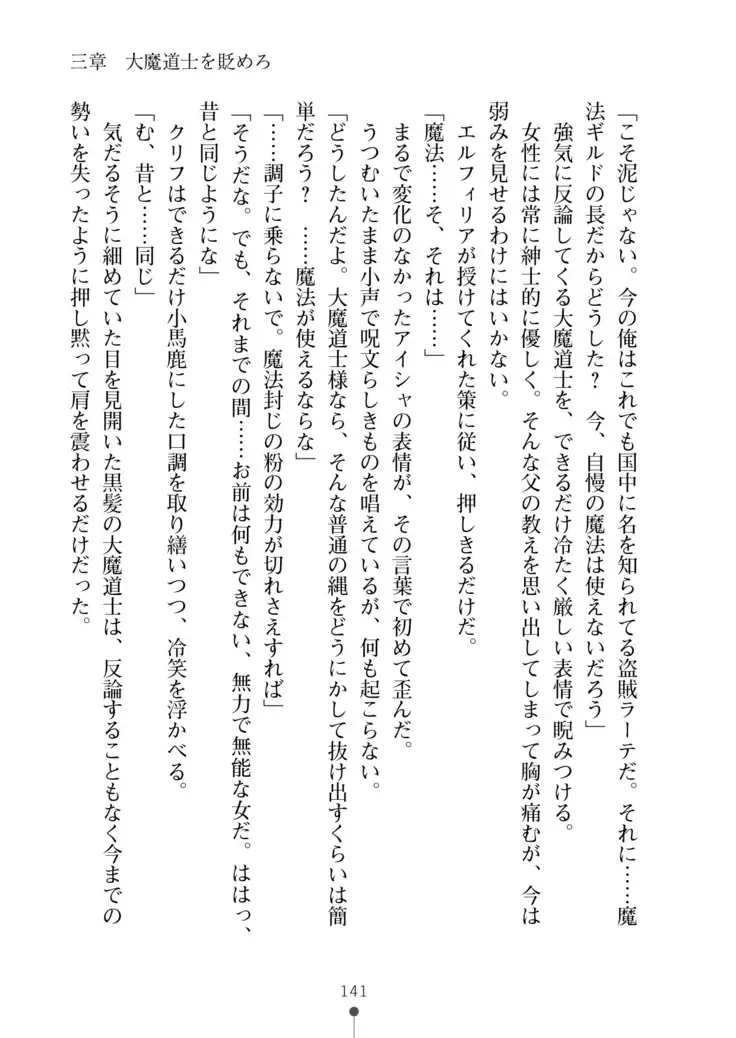 三章　大魔道士を貶めろ
「こそ泥じゃない。今の俺はこれでも国中に名を知られてる盗賊ラーテだ。それに……魔
法ギルドの長だからどうした？　今、自慢の魔法は使えないだろう」
　強気に反論してくる大魔道士を、できるだけ冷たく厳しい表情で睨みつける。
　女性には常に紳士的に優しく。そんな父の教えを思い出してしまって胸が痛むが、今は
弱みを見せるわけにはいかない。
　エルフィリアが授けてくれた策に従い、押しきるだけだ。
「魔法……そ、それは……」
　まるで変化のなかったアイシャの表情が、その言葉で初めて歪んだ。
　うつむいたまま小声で呪文らしきものを唱えているが、何も起こらない。
「どうしたんだよ。大魔道士様なら、そんな普通の縄をどうにかして抜け出すくらいは簡
単だろう？　……魔法が使えるならな」
「……調子に乗らないで。魔法封じの粉の効力が切れさえすれば」
「そうだな。でも、それまでの間……お前は何もできない、無力で無能な女だ。ははっ、
昔と同じようにな」
　クリフはできるだけ小馬鹿にした口調を取り繕いつつ、冷笑を浮かべる。
「む、昔と……同じ」
　気だるそうに細めていた目を見開いた黒髪の大魔道士は、反論することもなく今までの
勢いを失ったように押し黙って肩を震わせるだけだった。
141